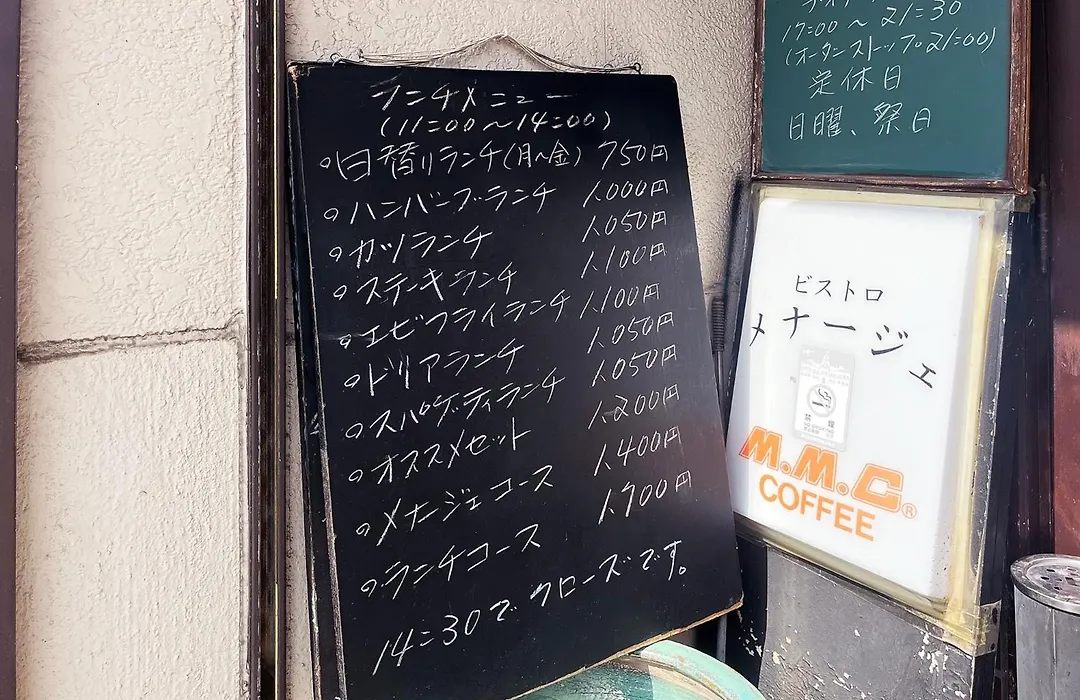 ランチメニュー
(11:00～14:00)
日替りランチ(月～金) 750円
ハンバーグランチ 1,000円
カツランチ 1,050円
ステーキランチ 1,100円
エビフライランチ 1,100円
ドリアランチ 1,050円
スパゲティランチ 1,050円
オススメセット 1,200円
メナージェコース 1,400円
ランチコース 1,700円
14:30でクローズです。
17:00～21:30
(オーダーストップ21:00)
定休日
日曜、祭日
ビストロ
メナージェ
禁煙
M.M.C®
COFFEE